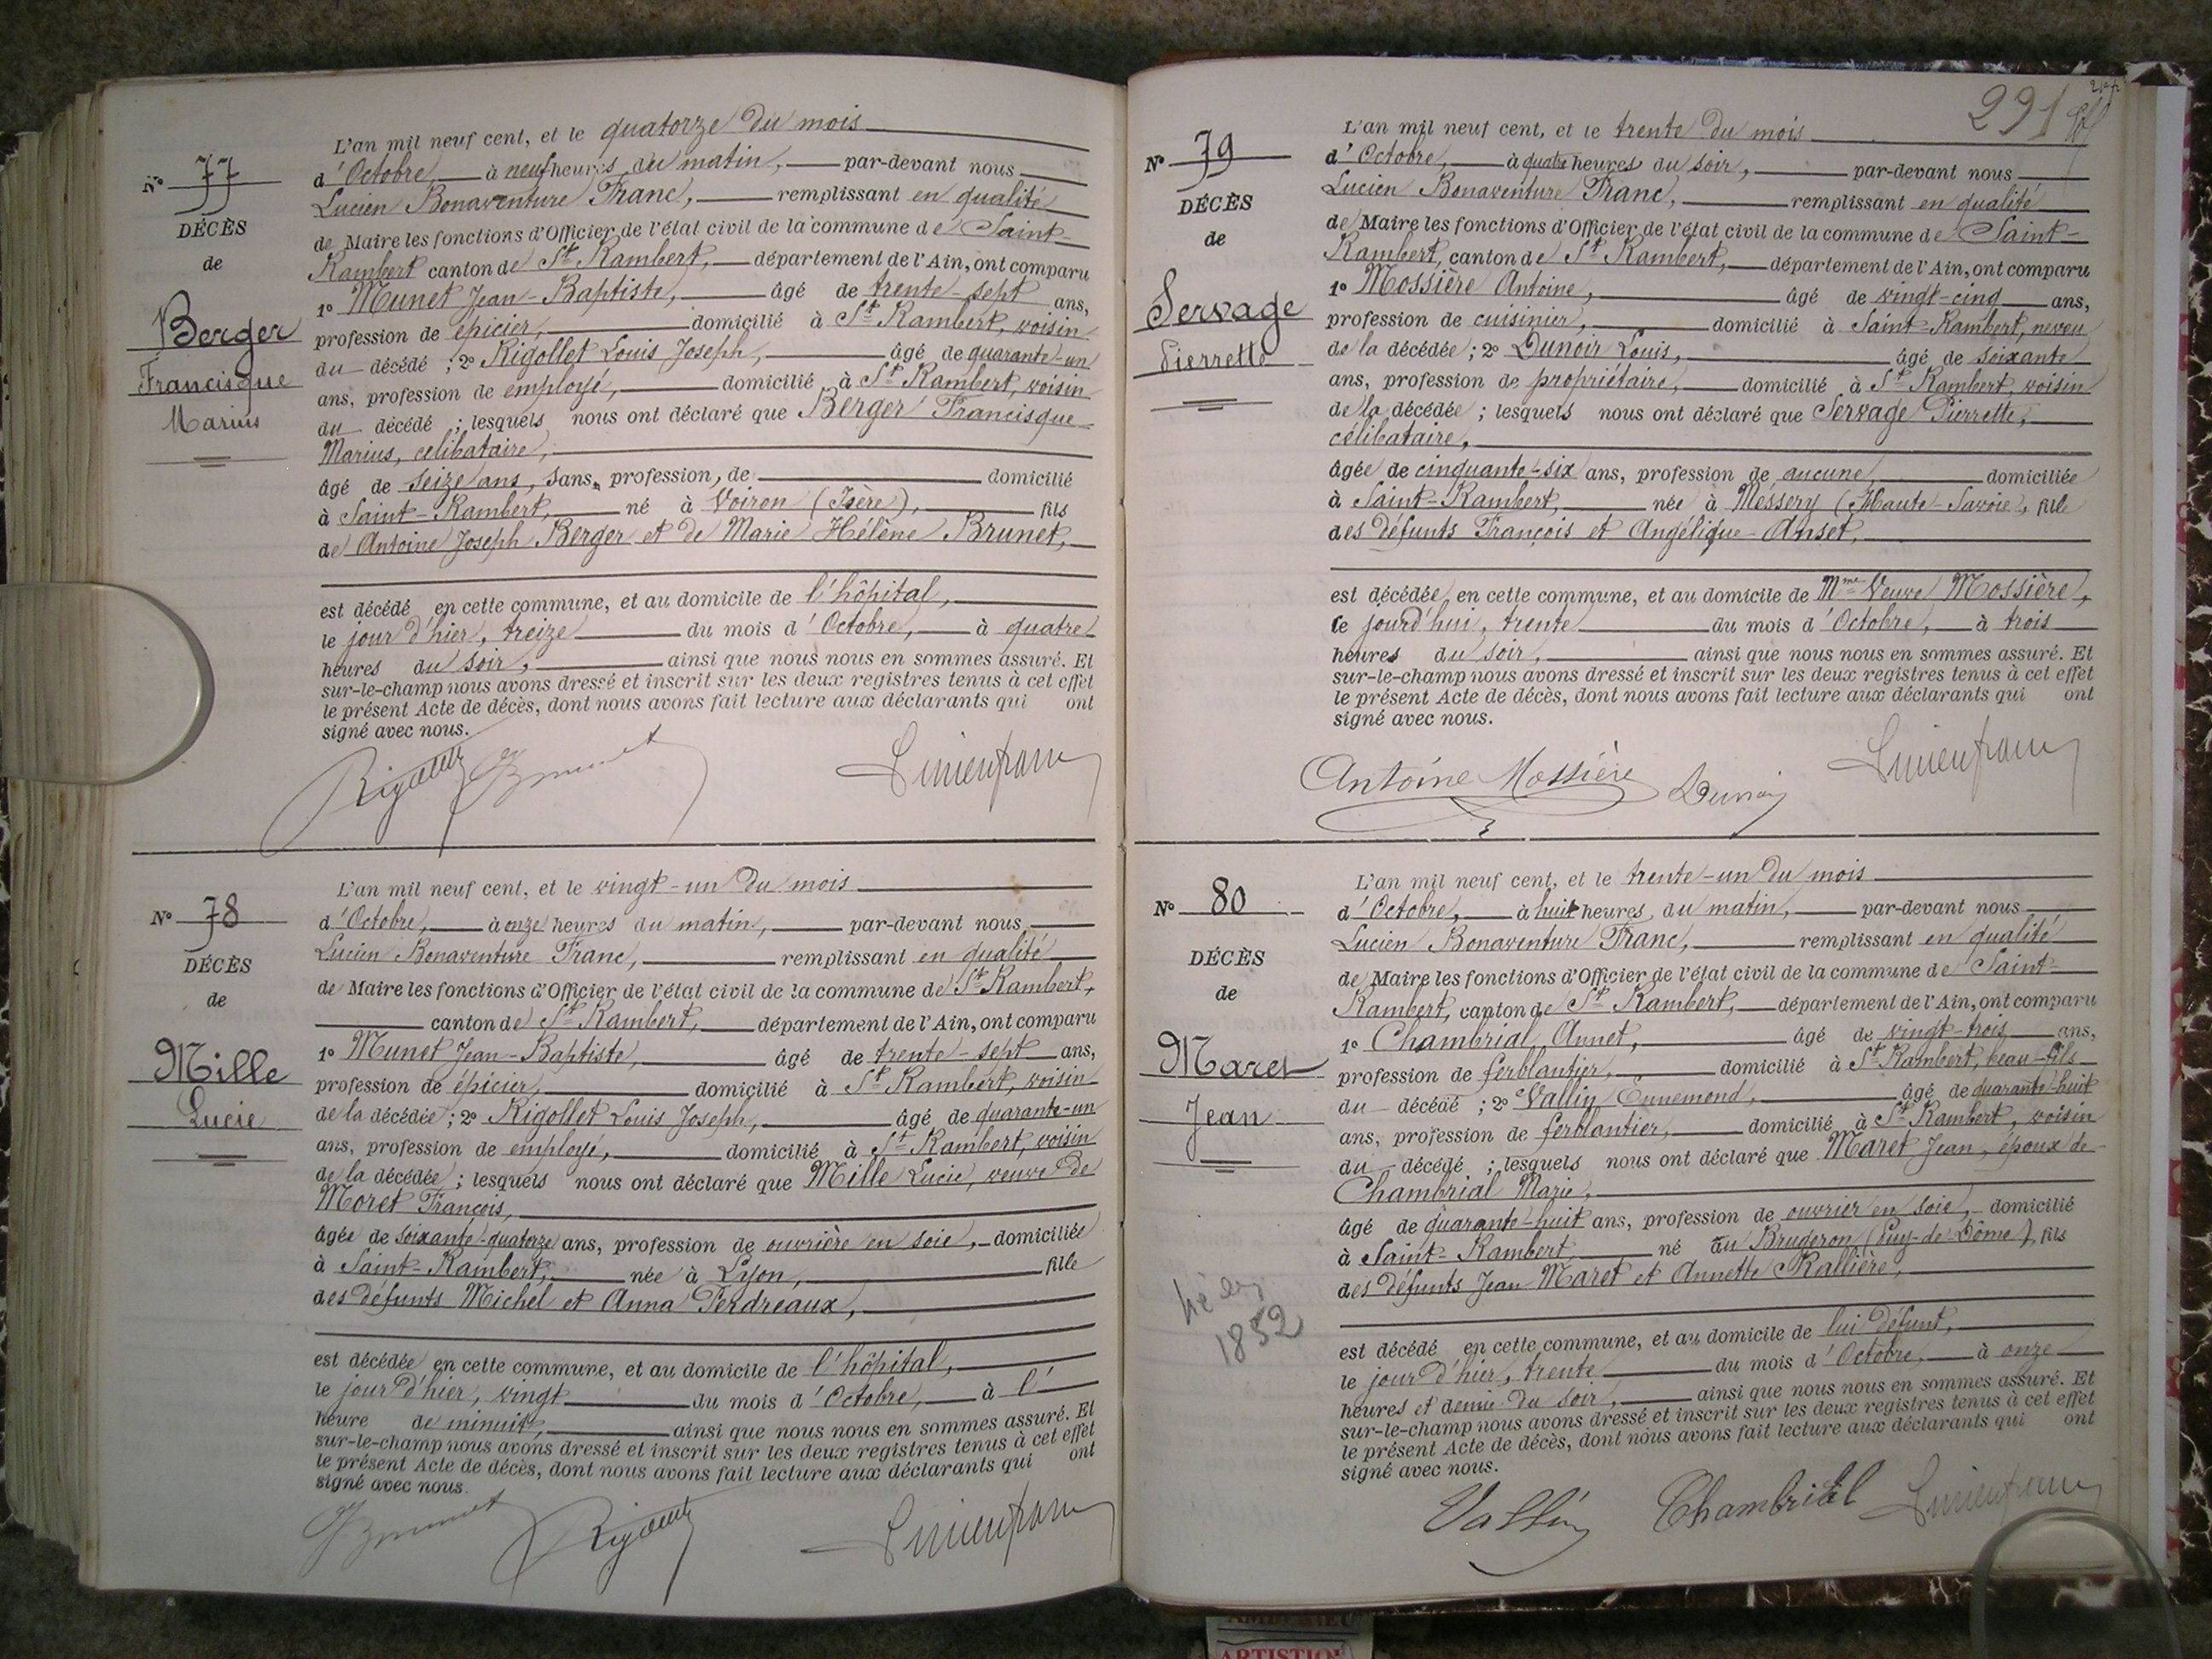 L'an mil neuf cent, et le quatorze du mois
d'Octobre, à neuf heures du matin, par-devant nous
Lucien Bonaventure Franc, remplissant en qualité
de Maire les fonctions d'Officier de l'état civil de la commune de Saint-
Rambert canton de St Rambert, département de l'Ain, ont comparu
1º Munet Jean-Baptiste, âgé de trente-sept ans,
profession de épicier, domicilié à St Rambert, voisin
du décédé ; 2º Rigollet Louis Joseph, âgé de quarante-un
ans, profession de employé, domicilié à St Rambert, voisin
du décédé ; lesquels nous ont déclaré que Berger Francisque
Marius, celibataire,
âgé de seize ans, sans profession, de domicilié
à Saint-Rambert, né à Voiron (Isère), fils
de Antoine Joseph Berger et de Marie Hélène Brunet,
est décédé en cette commune, et au domicile de l'hôpital,
le jour d'hier, treize du mois d'Octobre, à quatre
heures du soir, ainsi que nous nous en sommes assuré. Et
sur-le-champ nous avons dressé et inscrit sur les deux registres tenus à cet effet
le présent Acte de décès, dont nous avons fait lecture aux déclarants qui ont
signé avec nous.
Nº 77
DÉCÈS
de
Berger
Francisque
Marius
L'an mil neuf cent, et le vingt-un du mois
d'Octobre, à onze heures du matin, par-devant nous
Lucien Bonaventure Franc, remplissant en qualité
de Maire les fonctions d'Officier de l'état civil de la commune de St Rambert,
canton de St Rambert, département de l'Ain, ont comparu
1º Munet Jean-Baptiste, âgé de trente-sept ans,
profession de épicier, domicilié à St Rambert, voisin
de la décédée ; 2º Rigollet Louis Joseph, âgé de quarante-un
ans, profession de employé, domicilié à St Rambert, voisin
de la décédée ; lesquels nous ont déclaré que Mille Lucie, veuve de
Moret François,
âgée de soixante-quatorze ans, profession de ouvrière en soie, domiciliée
à Saint-Rambert, née à Lyon, fille
des défunts Michel et Anna Perdreaux,
est décédée en cette commune, et au domicile de l'hôpital,
le jour d'hier, vingt du mois d'Octobre, à l'
heure de minuit, ainsi que nous nous en sommes assuré. Et
sur-le-champ nous avons dressé et inscrit sur les deux registres tenus à cet effet
le présent Acte de décès, dont nous avons fait lecture aux déclarants qui ont
signé avec nous.
Nº 78
DÉCÈS
de
Mille
Lucie
291
L'an mil neuf cent, et le trente du mois
d'Octobre, à quatre heures du soir, par-devant nous
Lucien Bonaventure Franc, remplissant en qualité
de Maire les fonctions d'Officier de l'état civil de la commune de Saint-
Rambert, canton de St Rambert, département de l'Ain, ont comparu
1º Mossière Antoine, âgé de vingt-cinq ans,
profession de cuisinier, domicilié à Saint-Rambert, neveu
de la décédée ; 2º Dunoir Louis, âgé de soixante
ans, profession de propriétaire, domicilié à St Rambert, voisin
de la décédée ; lesquels nous ont déclaré que Servage Pierrette,
célibataire,
âgée de cinquante-six ans, profession de aucune, domiciliée
à Saint-Rambert, née à Messery (Haute-Savoie), fille
des défunts François et Angélique Anset,
est décédée en cette commune, et au domicile de Mme Veuve Mossière,
ce jourd'hui, trente du mois d'Octobre, à trois
heures du soir, ainsi que nous nous en sommes assuré. Et
sur-le-champ nous avons dressé et inscrit sur les deux registres tenus à cet effet
le présent Acte de décès, dont nous avons fait lecture aux déclarants qui ont
signé avec nous.
Antoine Mossière Dunoir
Nº 79
DÉCÈS
de
Servage
Pierrette
L'an mil neuf cent, et le trente-un du mois
d'Octobre, à huit heures du matin, par-devant nous
Lucien Bonaventure Franc, remplissant en qualité
de Maire les fonctions d'Officier de l'état civil de la commune de Saint-
Rambert, canton de St Rambert, département de l'Ain, ont comparu
1º Chambrial Annet, âgé de vingt-trois ans,
profession de ferblantier, domicilié à St Rambert, beau-fils
du décédé ; 2º Vallin Ennemond, âgé de quarante-huit
ans, profession de ferblantier, domicilié à St Rambert, voisin
du décédé ; lesquels nous ont déclaré que Maret Jean, époux de
Chambrial Marie,
âgé de quarante-huit ans, profession de ouvrier en soie, domicilié
à Saint-Rambert, né au Brugeron (Puy-de-Dôme), fils
des défunts Jean Maret et Annette Rallière,
est décédé en cette commune, et au domicile de lui défunt,
le jour d'hier, trente du mois d'Octobre, à onze
heures et demie du soir, ainsi que nous nous en sommes assuré. Et
sur-le-champ nous avons dressé et inscrit sur les deux registres tenus à cet effet
le présent Acte de décès, dont nous avons fait lecture aux déclarants qui ont
signé avec nous.
Vallin Chambrial
Nº 80
DÉCÈS
de
Maret
Jean
né
1852